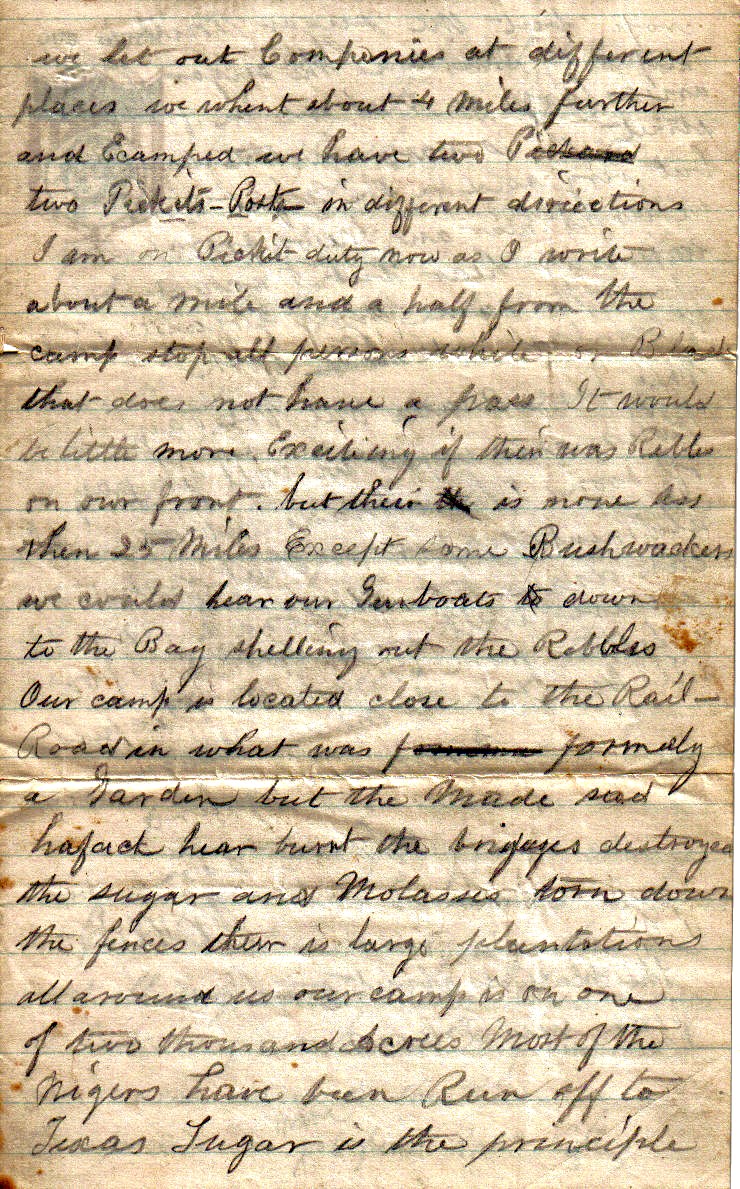 we let out Companies at different
places we whent about 4 Miles further
and Ecamped we have two Pickard
two Pickets-Posts in different diriections
I am on Pickit duty now as I write
about a mile and a half from the
camp stop all persons white or Black
that does not have a pass It would
be little more Exciteing if their was Rebles
on our front. but their is none less
then 25 Miles Except some Bushwackers
we could hear our Gunboats to down
to the Bay shelling out the Rebbles
Our camp is located close to the Rail-
Road in what was formely
a Garden but the Made sad
hafack hear burnt the brigges destroyed
the sugar and Molasses torn down
the fences their is large plantations
all around us our camp is on one
of two thousand Acrees Most of the
Nigers have been Run off to
Texas Sugar is the principle